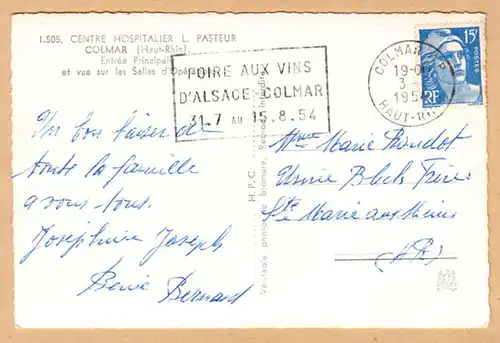 1.505. CENTRE HOSPITALIER L. PASTEUR
COLMAR (Haut-Rhin)
Entrée Principale
et vue sur les Salles d'Opérations
FOIRE AUX VINS
D'ALSACE COLMAR
31.7 AU 15.8.54
COLMAR
19-
3
195
HAUT-RHIN
15F
POSTES
RF
Un bon baiser de
toute la famille
a vous tous.
Joséphine Joseph
Bernard
H.P.C.
Véritable photo au bromure. Reproduction Interdite
Mme Marie
Usine Blech Frères
Ste Marie aux Mines
(HR)